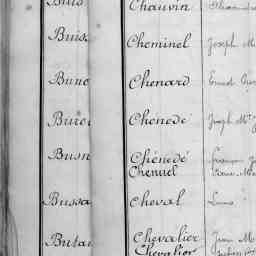 Buis Chauvin
Buiss Cheminel Joseph M
Buno Chenard Ernest
Buro Chénedé Joseph M
Busn Chénedé
Chenuel
Bussa Cheval Louis
Butau Chevalier Jean M
Chevalier